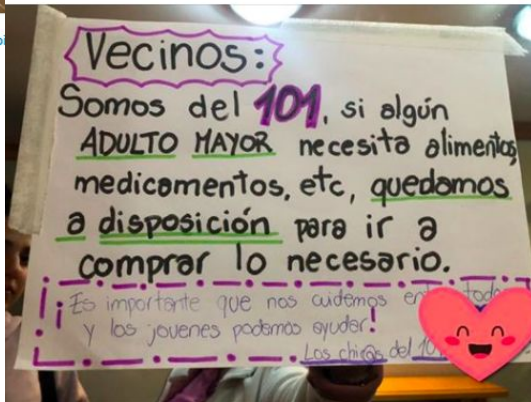 Vecinos:
Somos del 101, si algún
ADULTO MAYOR necesita alimentos,
medicamentos, etc, quedamos
a disposición para ir a
comprar lo necesario.
¡Es importante que nos cuidemos
y los jovenes podemos ayudar!
Los chic@s del